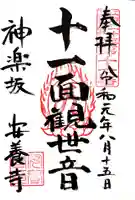 奉拝
令和元年八月十五日
十一面観世音
神楽坂
安養寺